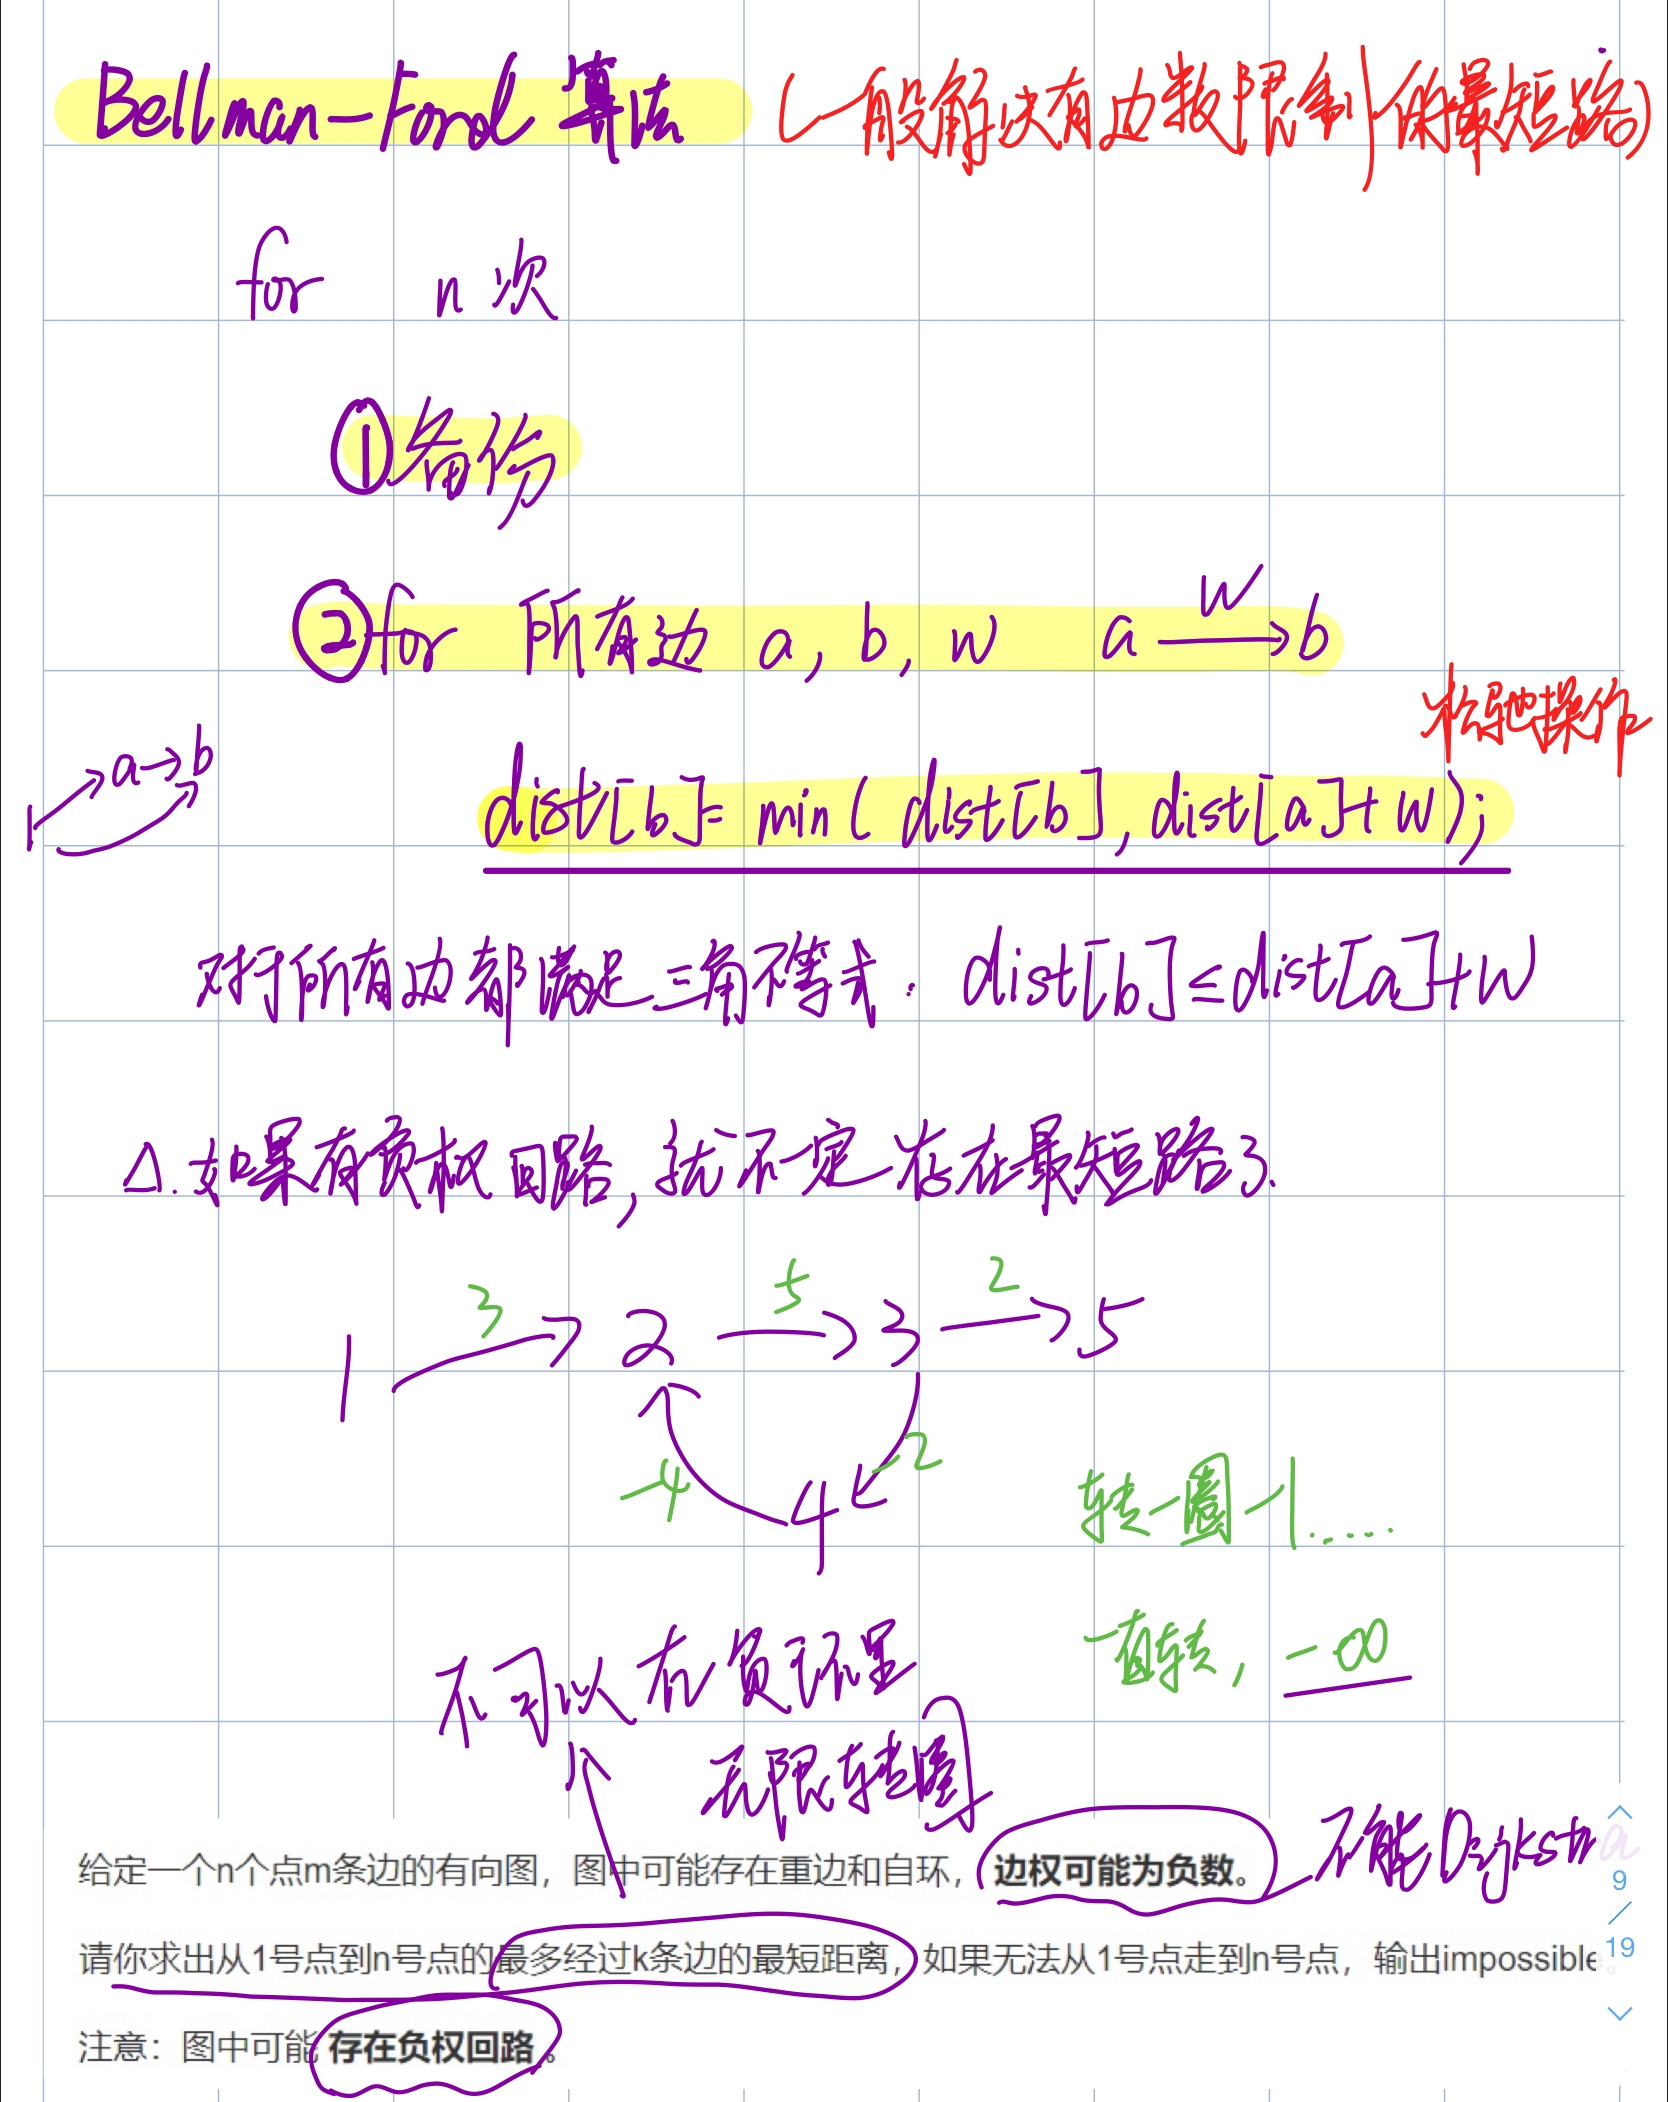 Bellman-Ford 算法 (一般解决有边数限制的最短路)
for n次
①备份
②for 所有边 a, b, w a w→ b
松驰操作
1→a→b
dist[b]= min( dist[b], dist[a]+w);
对于所有边都满足三角不等式. dist[b]≤dist[a]+w
△.如果有负权回路,就不一定存在最短路了.
3 5 2
1 → 2 → 3 → 5
-4 4 -2
转一圈-1......
一直转, -∞
不可以在负环里
无限转圈
不能Dijkstra
给定一个n个点m条边的有向图，图中可能存在重边和自环，边权可能为负数。
9
/
19
请你求出从1号点到n号点的最多经过k条边的最短距离，如果无法从1号点走到n号点，输出impossible。
注意：图中可能 存在负权回路 。